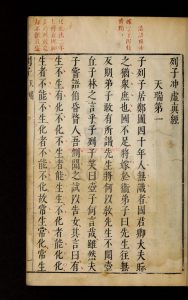 列子冲虛眞經
天瑞第一
子列子居鄭圃四十年人無識者國君卿大夫眎
之猶衆庶也國不足將嫁於衛弟子曰先生往無
反期弟子敢有所謁先生將何以教先生不聞壺
丘子林之言乎子列子笑曰壺子何言哉雖然夫
子嘗語伯昏瞀人吾側聞之試以告女其言曰有
生不生有化不化不生者能生生不化者能化化
生者不能不生化者不能不化故常生常化常生